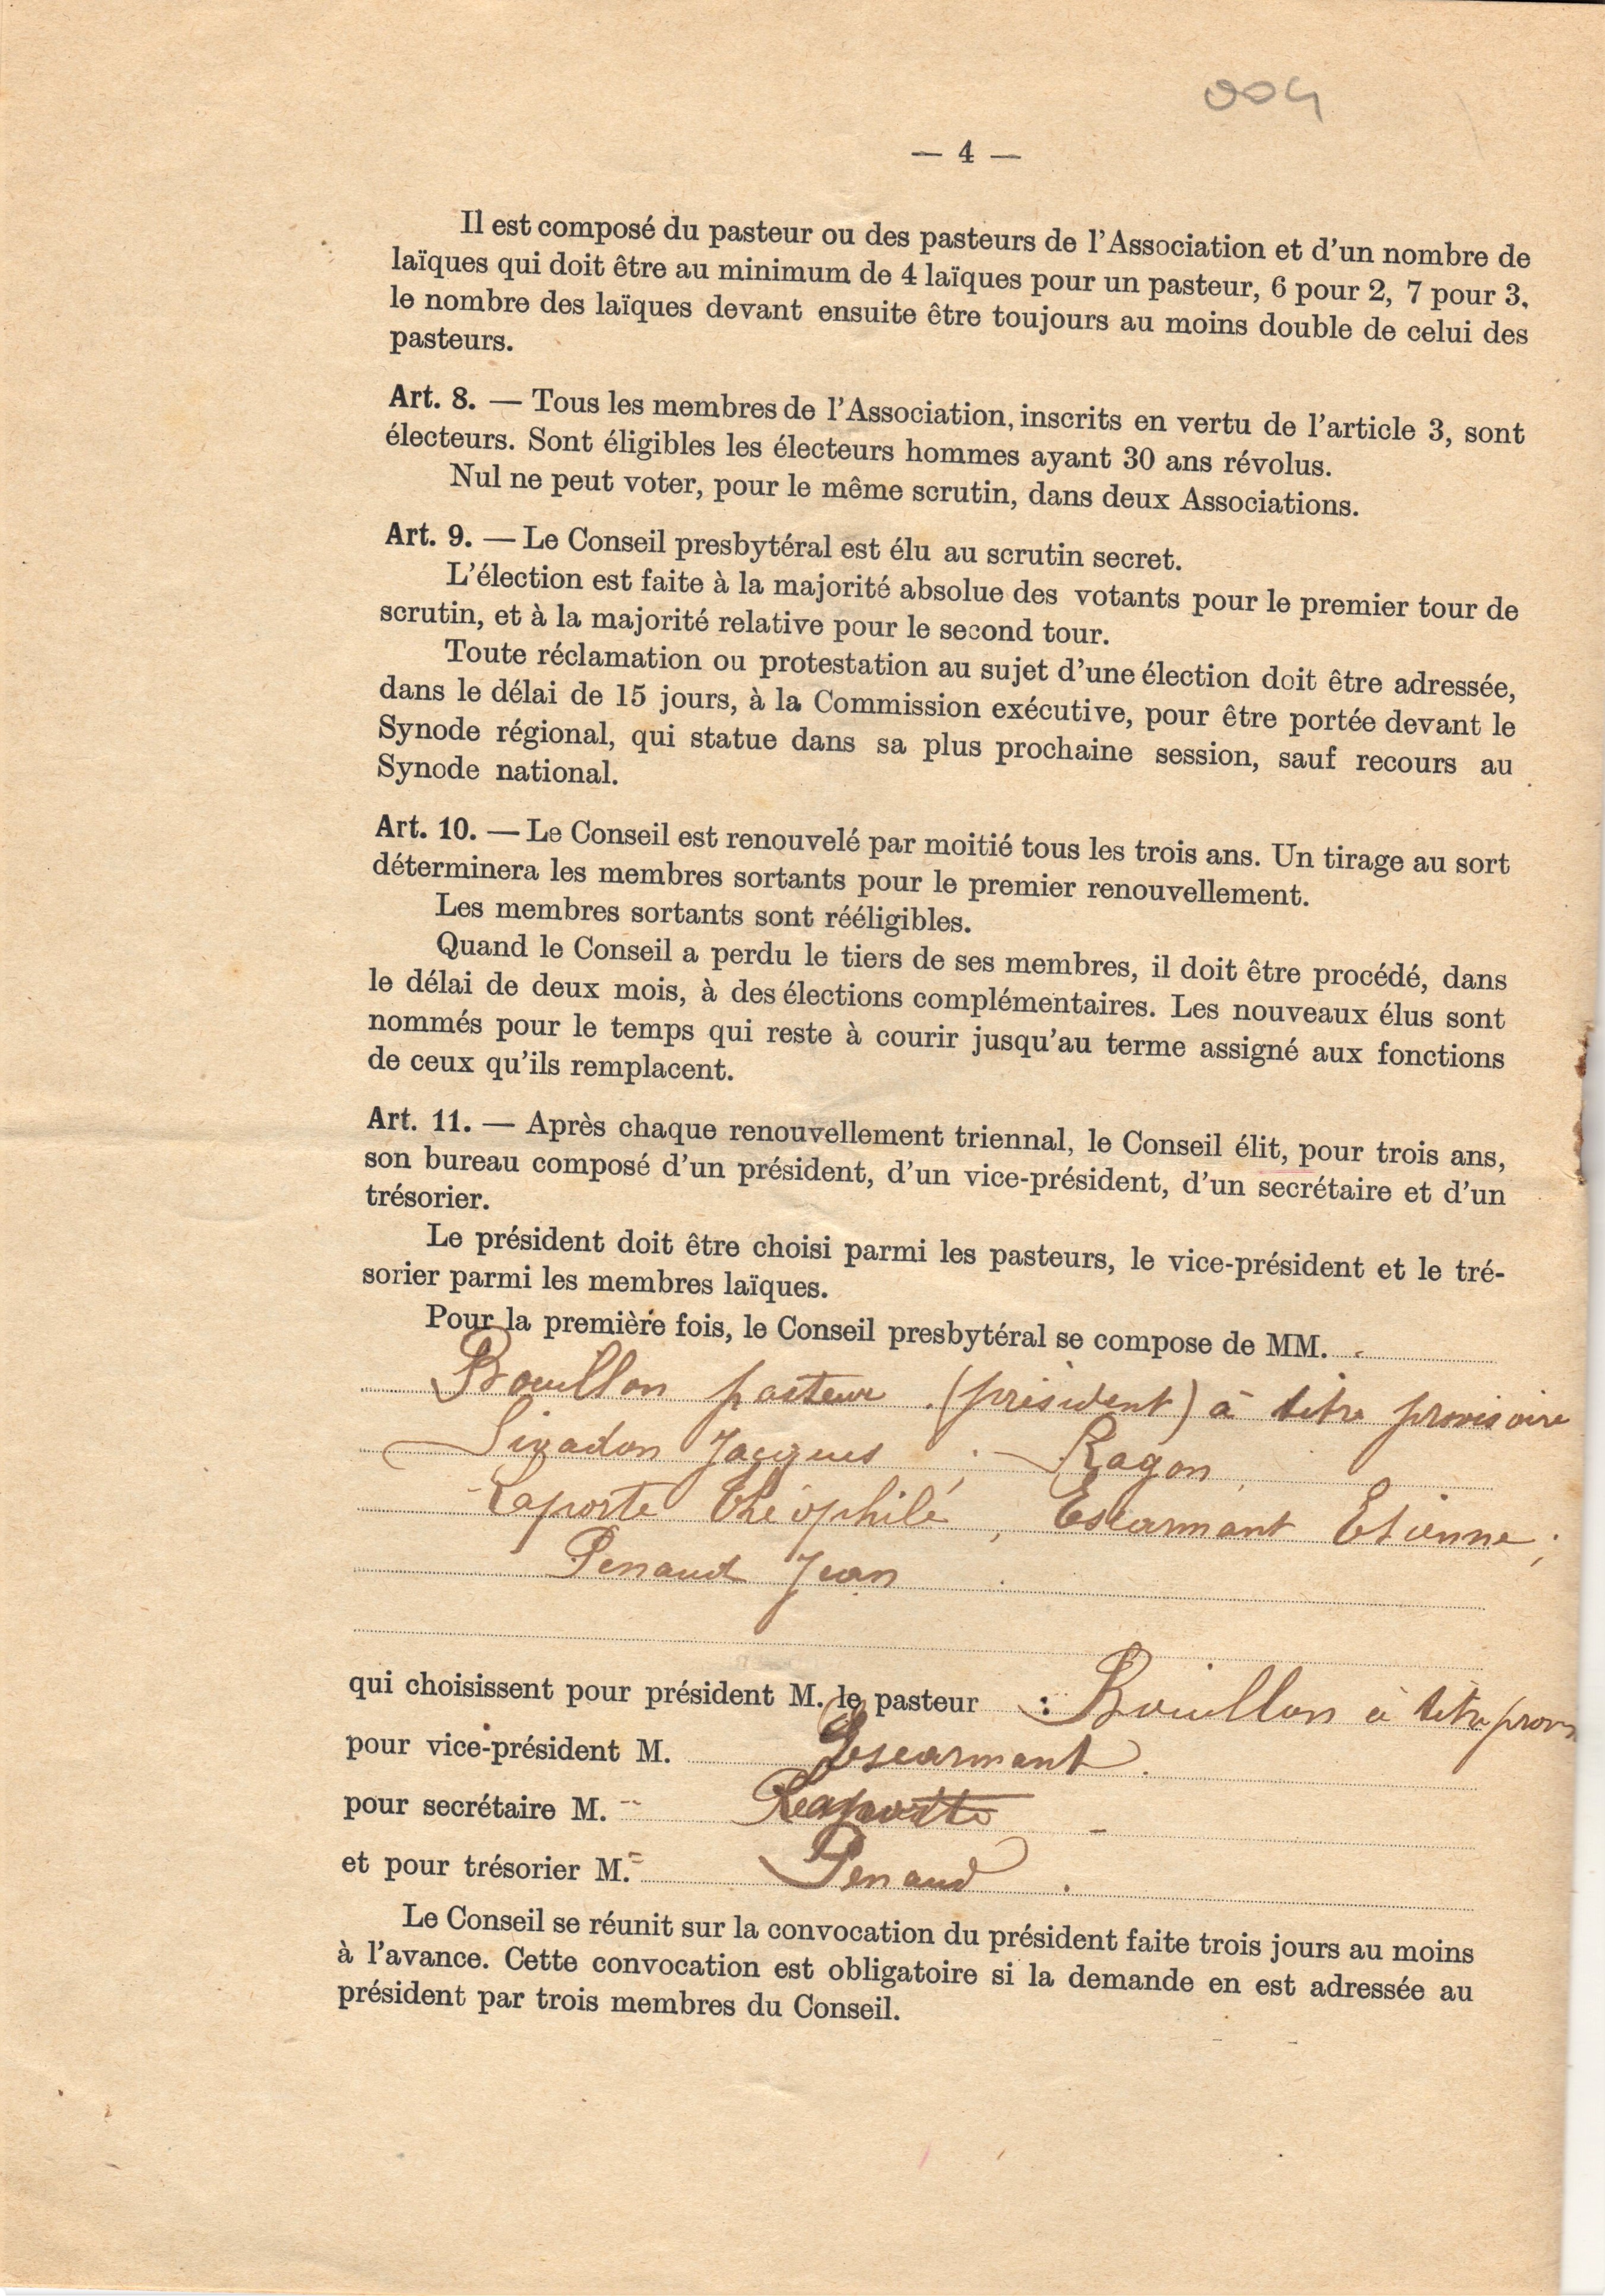 004
— 4 —
Il est composé du pasteur ou des pasteurs de l'Association et d'un nombre de
laïques qui doit être au minimum de 4 laïques pour un pasteur, 6 pour 2, 7 pour 3,
le nombre des laïques devant ensuite être toujours au moins double de celui des
pasteurs.
Art. 8. — Tous les membres de l'Association, inscrits en vertu de l'article 3, sont
électeurs. Sont éligibles les électeurs hommes ayant 30 ans révolus.
Nul ne peut voter, pour le même scrutin, dans deux Associations.
Art. 9. — Le Conseil presbytéral est élu au scrutin secret.
L'élection est faite à la majorité absolue des votants pour le premier tour de
scrutin, et à la majorité relative pour le second tour.
Toute réclamation ou protestation au sujet d'une élection doit être adressée,
dans le délai de 15 jours, à la Commission exécutive, pour être portée devant le
Synode régional, qui statue dans sa plus prochaine session, sauf recours au
Synode national.
Art. 10. — Le Conseil est renouvelé par moitié tous les trois ans. Un tirage au sort
déterminera les membres sortants pour le premier renouvellement.
Les membres sortants sont rééligibles.
Quand le Conseil a perdu le tiers de ses membres, il doit être procédé, dans
le délai de deux mois, à des élections complémentaires. Les nouveaux élus sont
nommés pour le temps qui reste à courir jusqu'au terme assigné aux fonctions
de ceux qu'ils remplacent.
Art. 11. — Après chaque renouvellement triennal, le Conseil élit, pour trois ans,
son bureau composé d'un président, d'un vice-président, d'un secrétaire et d'un
trésorier.
Le président doit être choisi parmi les pasteurs, le vice-président et le tré-
sorier parmi les membres laïques.
Pour la première fois, le Conseil presbytéral se compose de MM.
Bouillon pasteur (président) à titre provisoire
Sivadon Jacques ; Ragon
Laporte Théophile, Escarmant Etienne ;
Penaud Jean
qui choisissent pour président M. le pasteur : Bouillon à titre prov
pour vice-président M. Escarmant.
pour secrétaire M. Laporte
et pour trésorier M. Penaud.
Le Conseil se réunit sur la convocation du président faite trois jours au moins
à l'avance. Cette convocation est obligatoire si la demande en est adressée au
président par trois membres du Conseil.